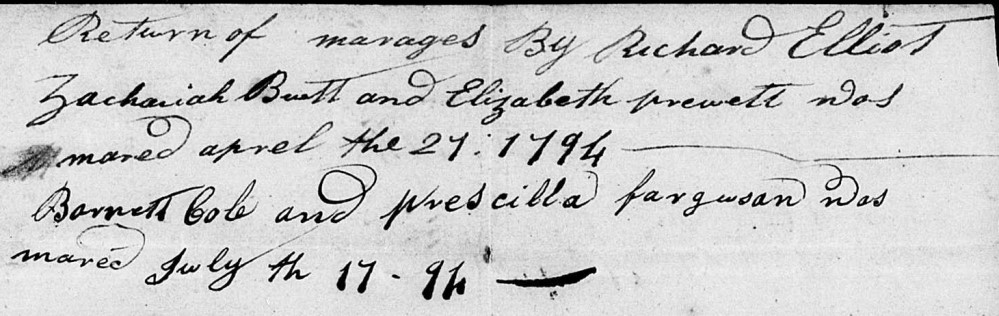 Return of marages By Richard Elliot
Zachariah Butt and Elizabeth prewett was
mared aprel the 27: 1794
Barnett Cole and prescilla farguson was
mared July th 17 - 94